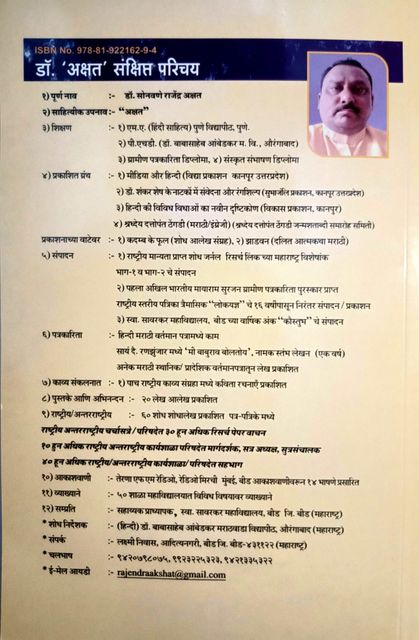 ISBN No. 978-81-922162-9-4
डॉ. 'अक्षत' संक्षिप्त परिचय
१) पूर्ण नाव :- डॉ. सोनवणे राजेंद्र अक्षत
२) साहित्यीक उपनाव :- "अक्षत"
३) शिक्षण :- १) एम.ए. (हिंदी साहित्य) पुणे विद्यापीठ, पुणे.
२) पी.एचडी. (डॉ. बाबासाहेब आंबेडकर म. वि., औरंगाबाद)
३) ग्रामीण पत्रकारिता डिप्लोमा, ४) संस्कृत संभाषण डिप्लोमा
४) प्रकाशित ग्रंथ :- १) मीडिया और हिन्दी (विद्या प्रकाशन कानपुर उत्तरप्रदेश)
२) डॉ. शंकर शेष के नाटकों में संवेदना और रंगशिल्प (सुभांजलि प्रकाशन, कानपुर उत्तरप्रदेश)
३) हिन्दी की विविध विधाओं का नवीन दृष्टिकोण (विकास प्रकाशन, कानपुर)
४) श्रध्देय दत्तोपंत ठेंगडी (मराठी/इंग्रेजी) (श्रध्देय दत्तोपंत ठेंगडी जन्मशताब्दी समारोह समिती)
प्रकाशनाच्या वाटेवर :- १) कदम्ब के फूल (शोध आलेख संग्रह), २) झाडवन (दलित आत्मकथा मराठी)
५) संपादन :- १) राष्ट्रीय मान्यता प्राप्त शोध जर्नल रिसर्च लिंक च्या महाराष्ट्र विशेषांक
भाग-१ व भाग-२ चे संपादन
२) पहला अखिल भारतीय मायाराम सुरजन ग्रामीण पत्रकारिता पुरस्कार प्राप्त
राष्ट्रीय स्तरीय पत्रिका त्रैमासिक "लोकयज्ञ" चे १६ वर्षापासून निरंतर संपादन / प्रकाशन
३) स्वा. सावरकर महाविद्यालय, बीड च्या वार्षिक अंक "कौस्तुभ" चे संपादन
६) पत्रकारिता :- हिन्दी मराठी वर्तमान पत्रामध्ये काम
सायं दै. रणझुंजार मध्ये 'मी बाबुराव बोलतोय', नामक स्तंभ लेखन (एक वर्ष)
अनेक मराठी स्थानिक/ प्रादेशिक वर्तमानपत्रातून लेख प्रकाशित
७) काव्य संकलनात :- १) पाच राष्ट्रीय काव्य संग्रहा मध्ये कविता रचनाएँ प्रकाशित
८) पुस्तके आणि अभिनन्दन :- २० लेख आलेख प्रकाशित
९) राष्ट्रीय/अन्तरराष्ट्रीय :- ६० शोध शोधालेख प्रकाशित पत्र-पत्रिके मध्ये
राष्ट्रीय अन्तरराष्ट्रीय चर्चासत्रे / परिषदेत ३० हून अधिक रिसर्च पेपर वाचन
१० हुन अधिक राष्ट्रीय अन्तराष्ट्रीय कार्यशाळा परिषदेत मार्गदर्शक, सत्र अध्यक्ष, सुत्रसंचालक
४० हून अधिक राष्ट्रीय/अन्तराष्ट्रीय कार्यशाळा/ परिषदेत सहभाग
१०) आकाशवाणी :- तेरणा एफ एम रेडिओ, रेडिओ मिरची मुंबई, बीड आकाशवाणीवरून १४ भाषणे प्रसारित
११) व्याख्याने :- ५० शाळा महाविद्यालयात विविध विषयावर व्याख्याने
१२) सम्प्रति :- सहाय्यक प्राध्यापक, स्वा. सावरकर महाविद्यालय, बीड जि. बीड (महाराष्ट्र)
* शोध निर्देशक :- (हिन्दी) डॉ. बाबासाहेब आंबेडकर मराठवाडा विद्यापीठ, औरंगाबाद (महाराष्ट्र)
* संपर्क :- लक्ष्मी निवास, आदित्यनगरी, बीड जि. बीड-४३११२२ (महाराष्ट्र)
* चलभाष :- ९४२०७९८०७५, ९९२३२२५३२३, ९४२१३३५३२२
* ई-मेल आयडी :- rajendraakshat@gmail.com